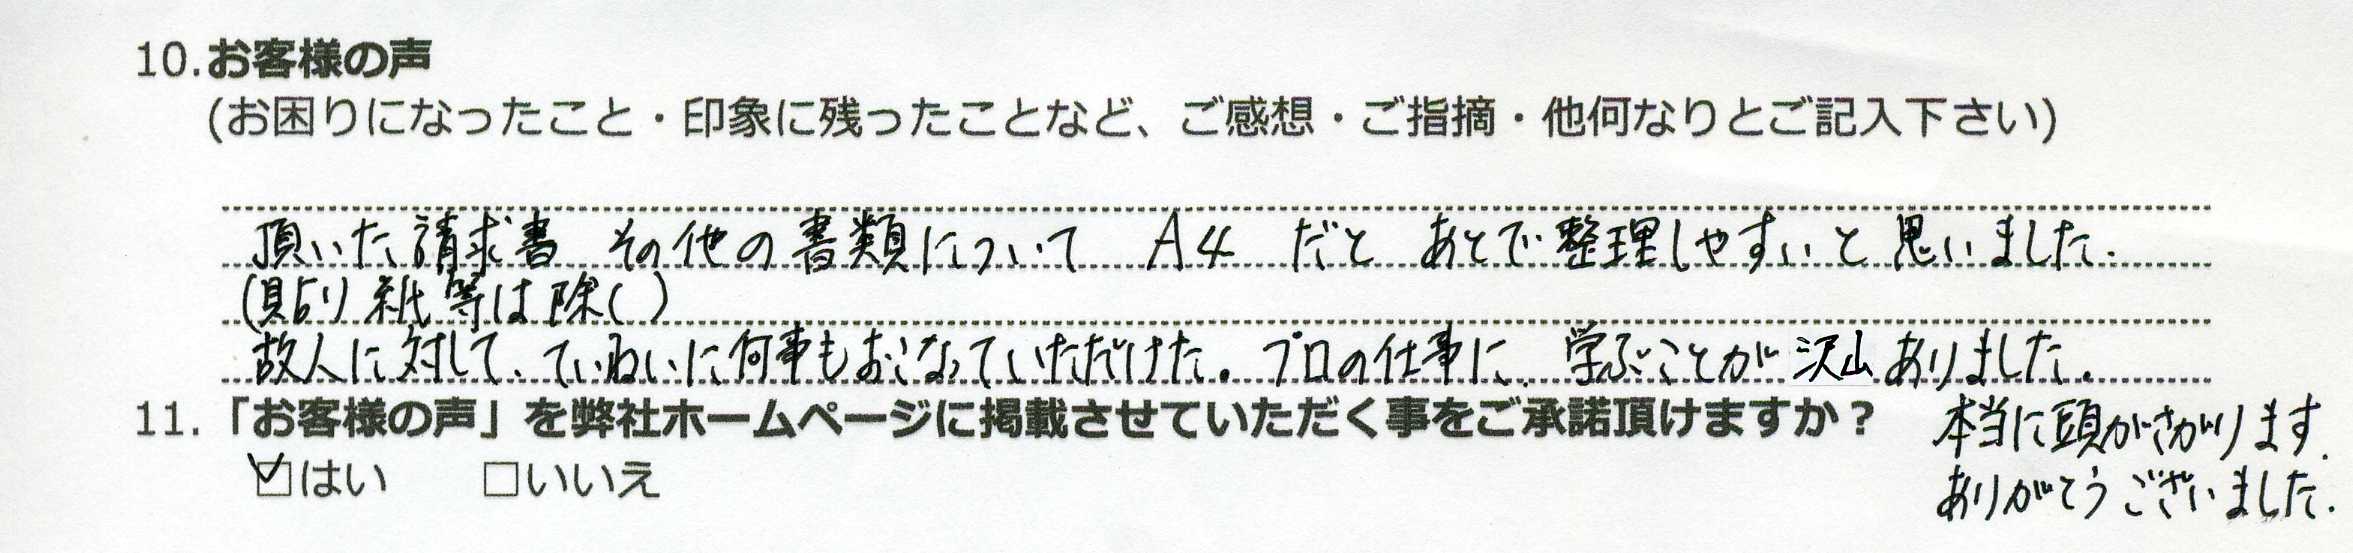 10.お客様の声
(お困りになったこと・印象に残ったことなど、ご感想・ご指摘・他何なりとご記入下さい)
頂いた請求書 その他の書類について A4 だと あとで整理しやすいと思いました.
(貼り紙等は除く)
故人に対して、ていねいに何事もおこなっていただけた。プロの仕事に、学ぶことが沢山ありました.
11.「お客様の声」を弊社ホームページに掲載させていただく事をご承諾頂けますか？
☑はい □いいえ
本当に頭がさがります.
ありがとうございました.